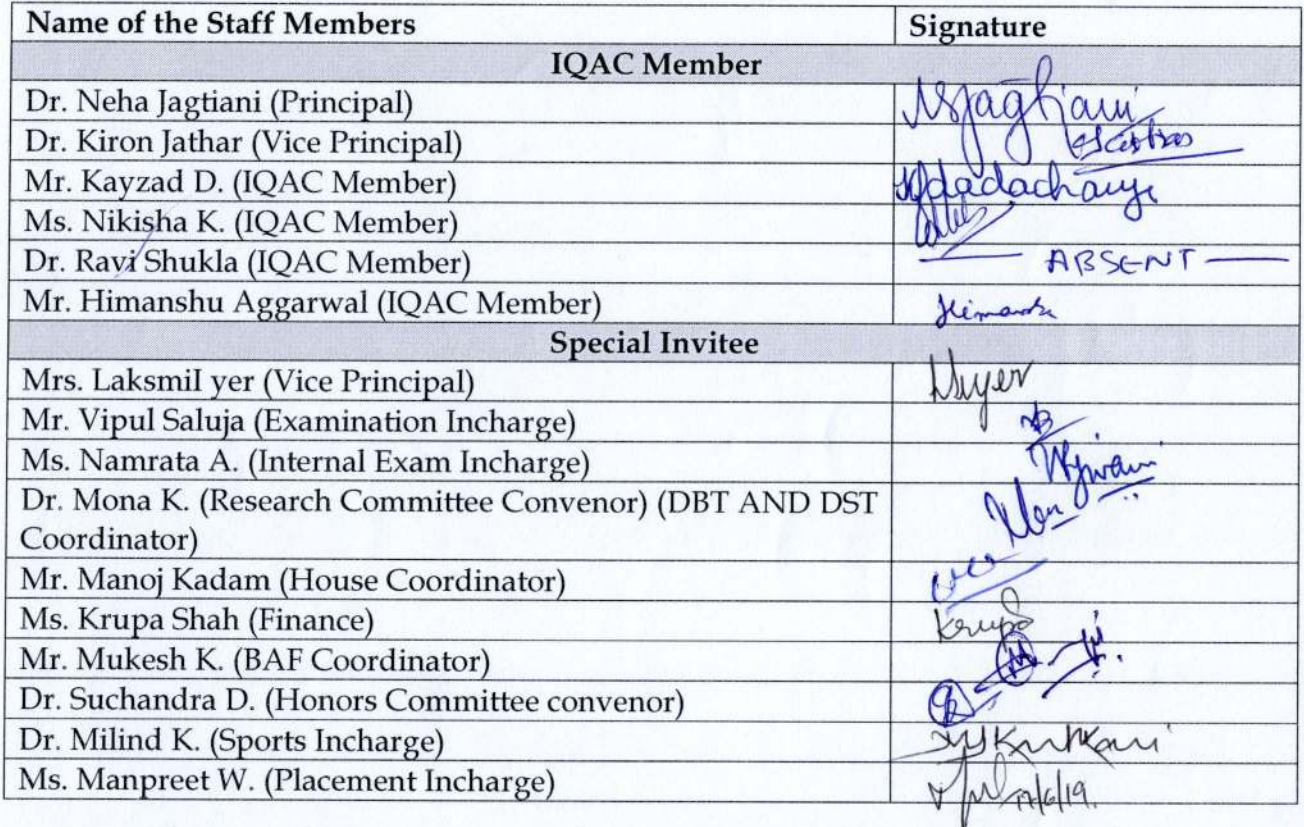 Name of the Staff Members Signature
IQAC Member
Dr. Neha Jagtiani (Principal) NJagtiani
Dr. Kiron Jathar (Vice Principal)
Mr. Kayzad D. (IQAC Member) Kfdadachanji
Ms. Nikisha K. (IQAC Member)
Dr. Ravi Shukla (IQAC Member) ABSENT
Mr. Himanshu Aggarwal (IQAC Member) Himanshu
Special Invitee
Mrs. LaksmiI yer (Vice Principal)
Mr. Vipul Saluja (Examination Incharge)
Ms. Namrata A. (Internal Exam Incharge)
Dr. Mona K. (Research Committee Convenor) (DBT AND DST
Coordinator)
Mr. Manoj Kadam (House Coordinator)
Ms. Krupa Shah (Finance) Krupa
Mr. Mukesh K. (BAF Coordinator)
Dr. Suchandra D. (Honors Committee convenor)
Dr. Milind K. (Sports Incharge)
Ms. Manpreet W. (Placement Incharge) 17/6/19.